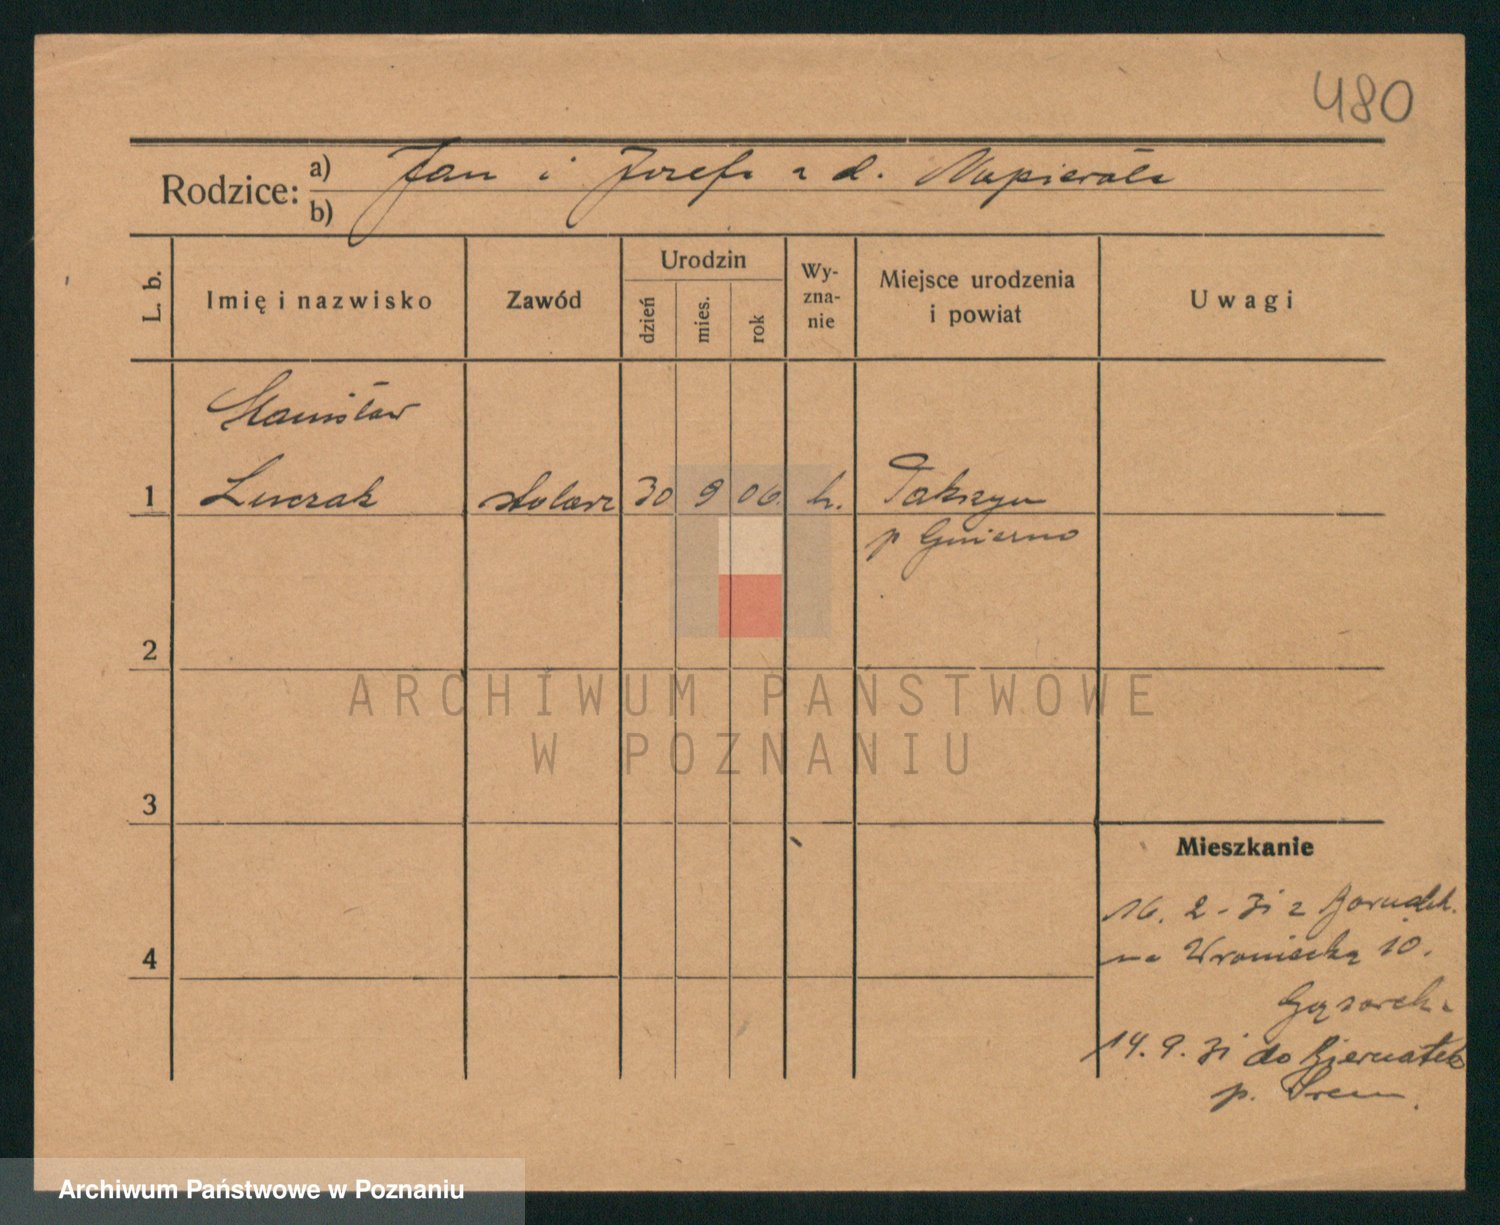 480
Rodzice: a) Jan i Józefa z d. Napierała
b)
L. b.
Imię i nazwisko
Zawód
Urodzin
dzień
mies.
rok
Wy-
zna-
nie
Miejsce urodzenia
i powiat
Uwagi
Stanisław
1 Luczak stolarz 30 9 06. k.
p Gniezno
2
ARCHIWUM PAŃSTWOWE
W POZNANIU
3
Mieszkanie
16. 2 - 31 z
na Wroniecką 10.
4
14. 9. 31 do Biernatek
p. Śrem.
Archiwum Państwowe w Poznaniu